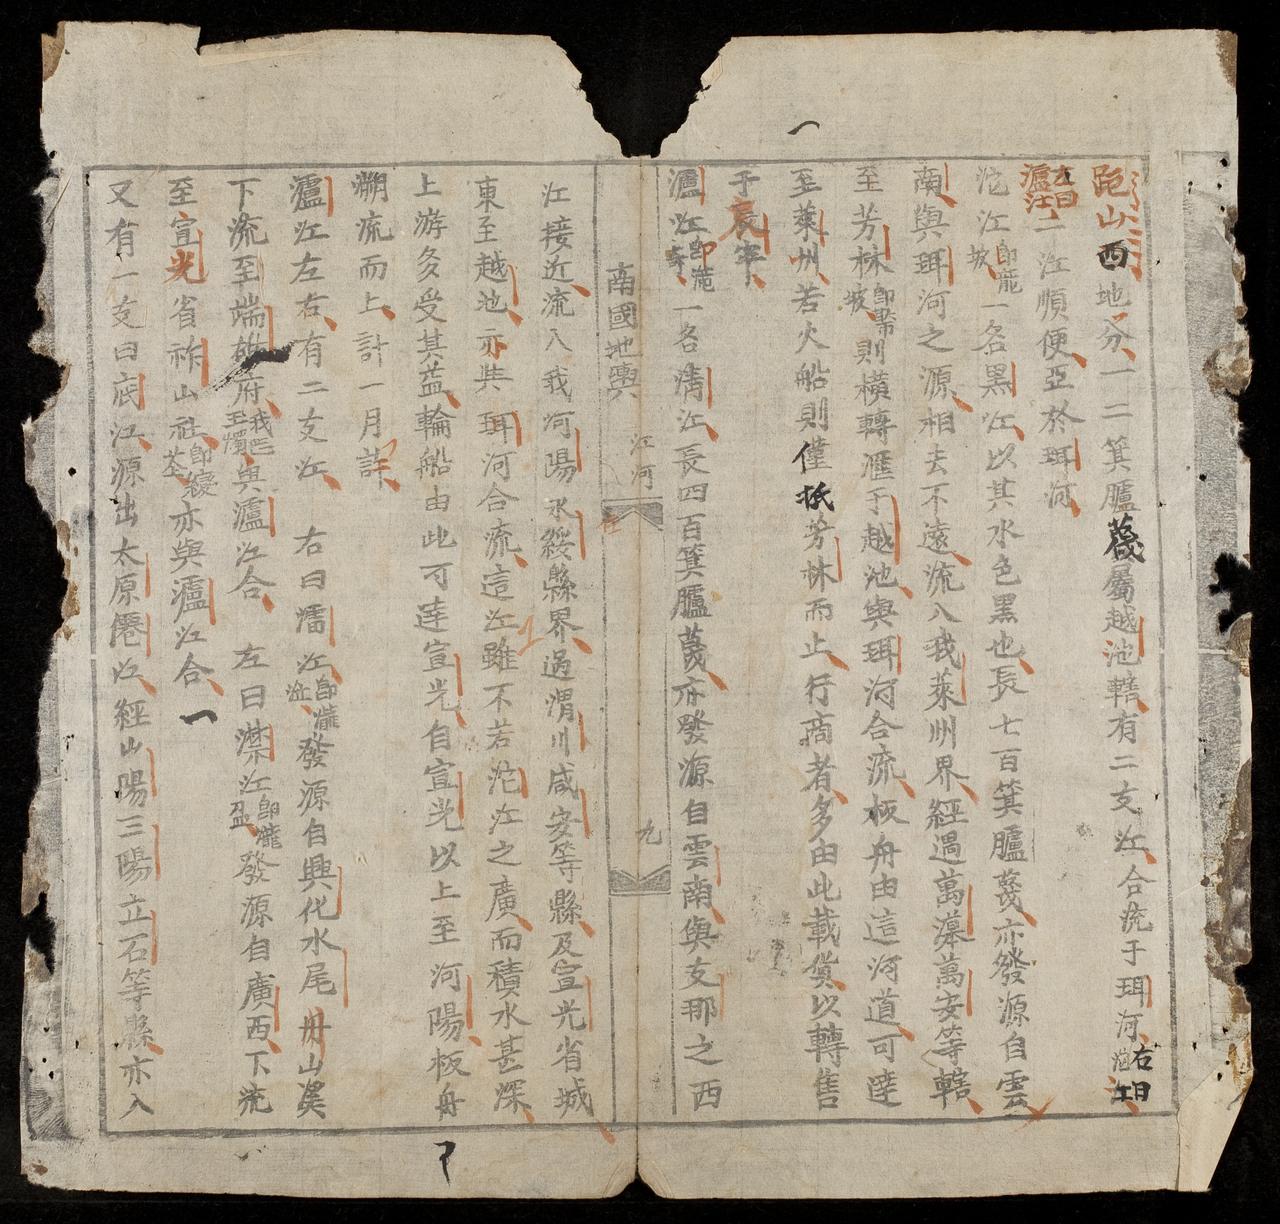 山西地分一二箕臚薎屬越池轄有二支江合流于珥河右曰沱江
左曰瀘江二江順便亞於珥河
沱江即瀧坡一名黑江以其水色黑也長七百箕臚薎亦發源自雲
南與珥河之源相去不遠流入我萊州界經過萬漥萬安等轄
至芳林坡則橫轉滙于越池與珥河合流板舟由這河道可達
至萊州若火船則僅抵芳林而止行商者多由此載貨以轉售
于
瀘江即滝一名清江長四百箕臚薎亦發源自雲南與支那之西
南國地輿 江河 九
江接近流入我河陽永綏縣界過渭川咸安等縣及宣光省城
東至越池亦與珥河合流這江雖不若沱江之廣而積水甚深
上游多受其益輪船由此可達宣光自宣光以上至河陽板舟
溯流而上計一月許
瀘江左右有二支江 右曰㶟江即瀧發源自興化水尾州山奠
下流至端雄府與瀘江合 左曰𣻗江即瀧發源自廣西下流
至宣光省祚山社亦與瀘江合
又有一支曰底江源出太原僊江經山陽三陽立石等縣亦入